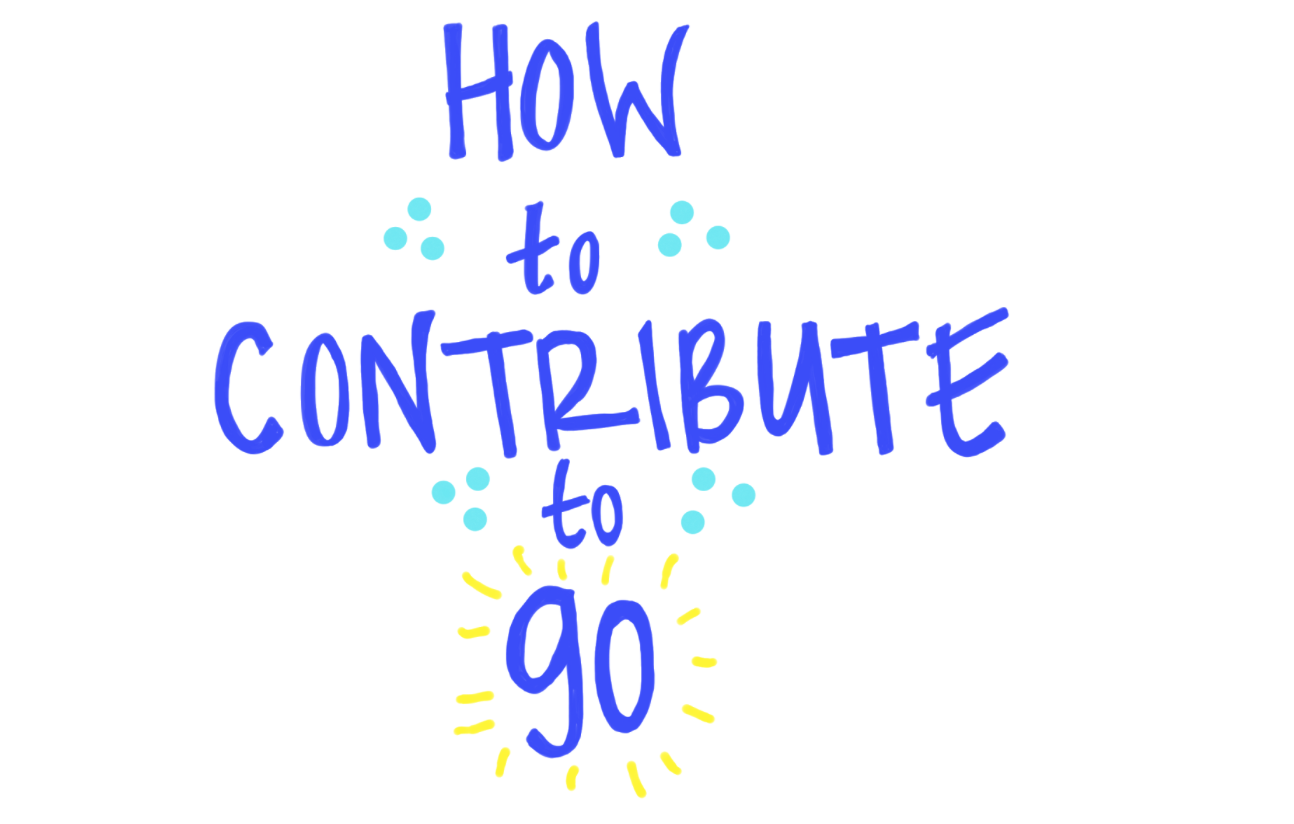 HOW
to
CONTRIBUTE
to
go